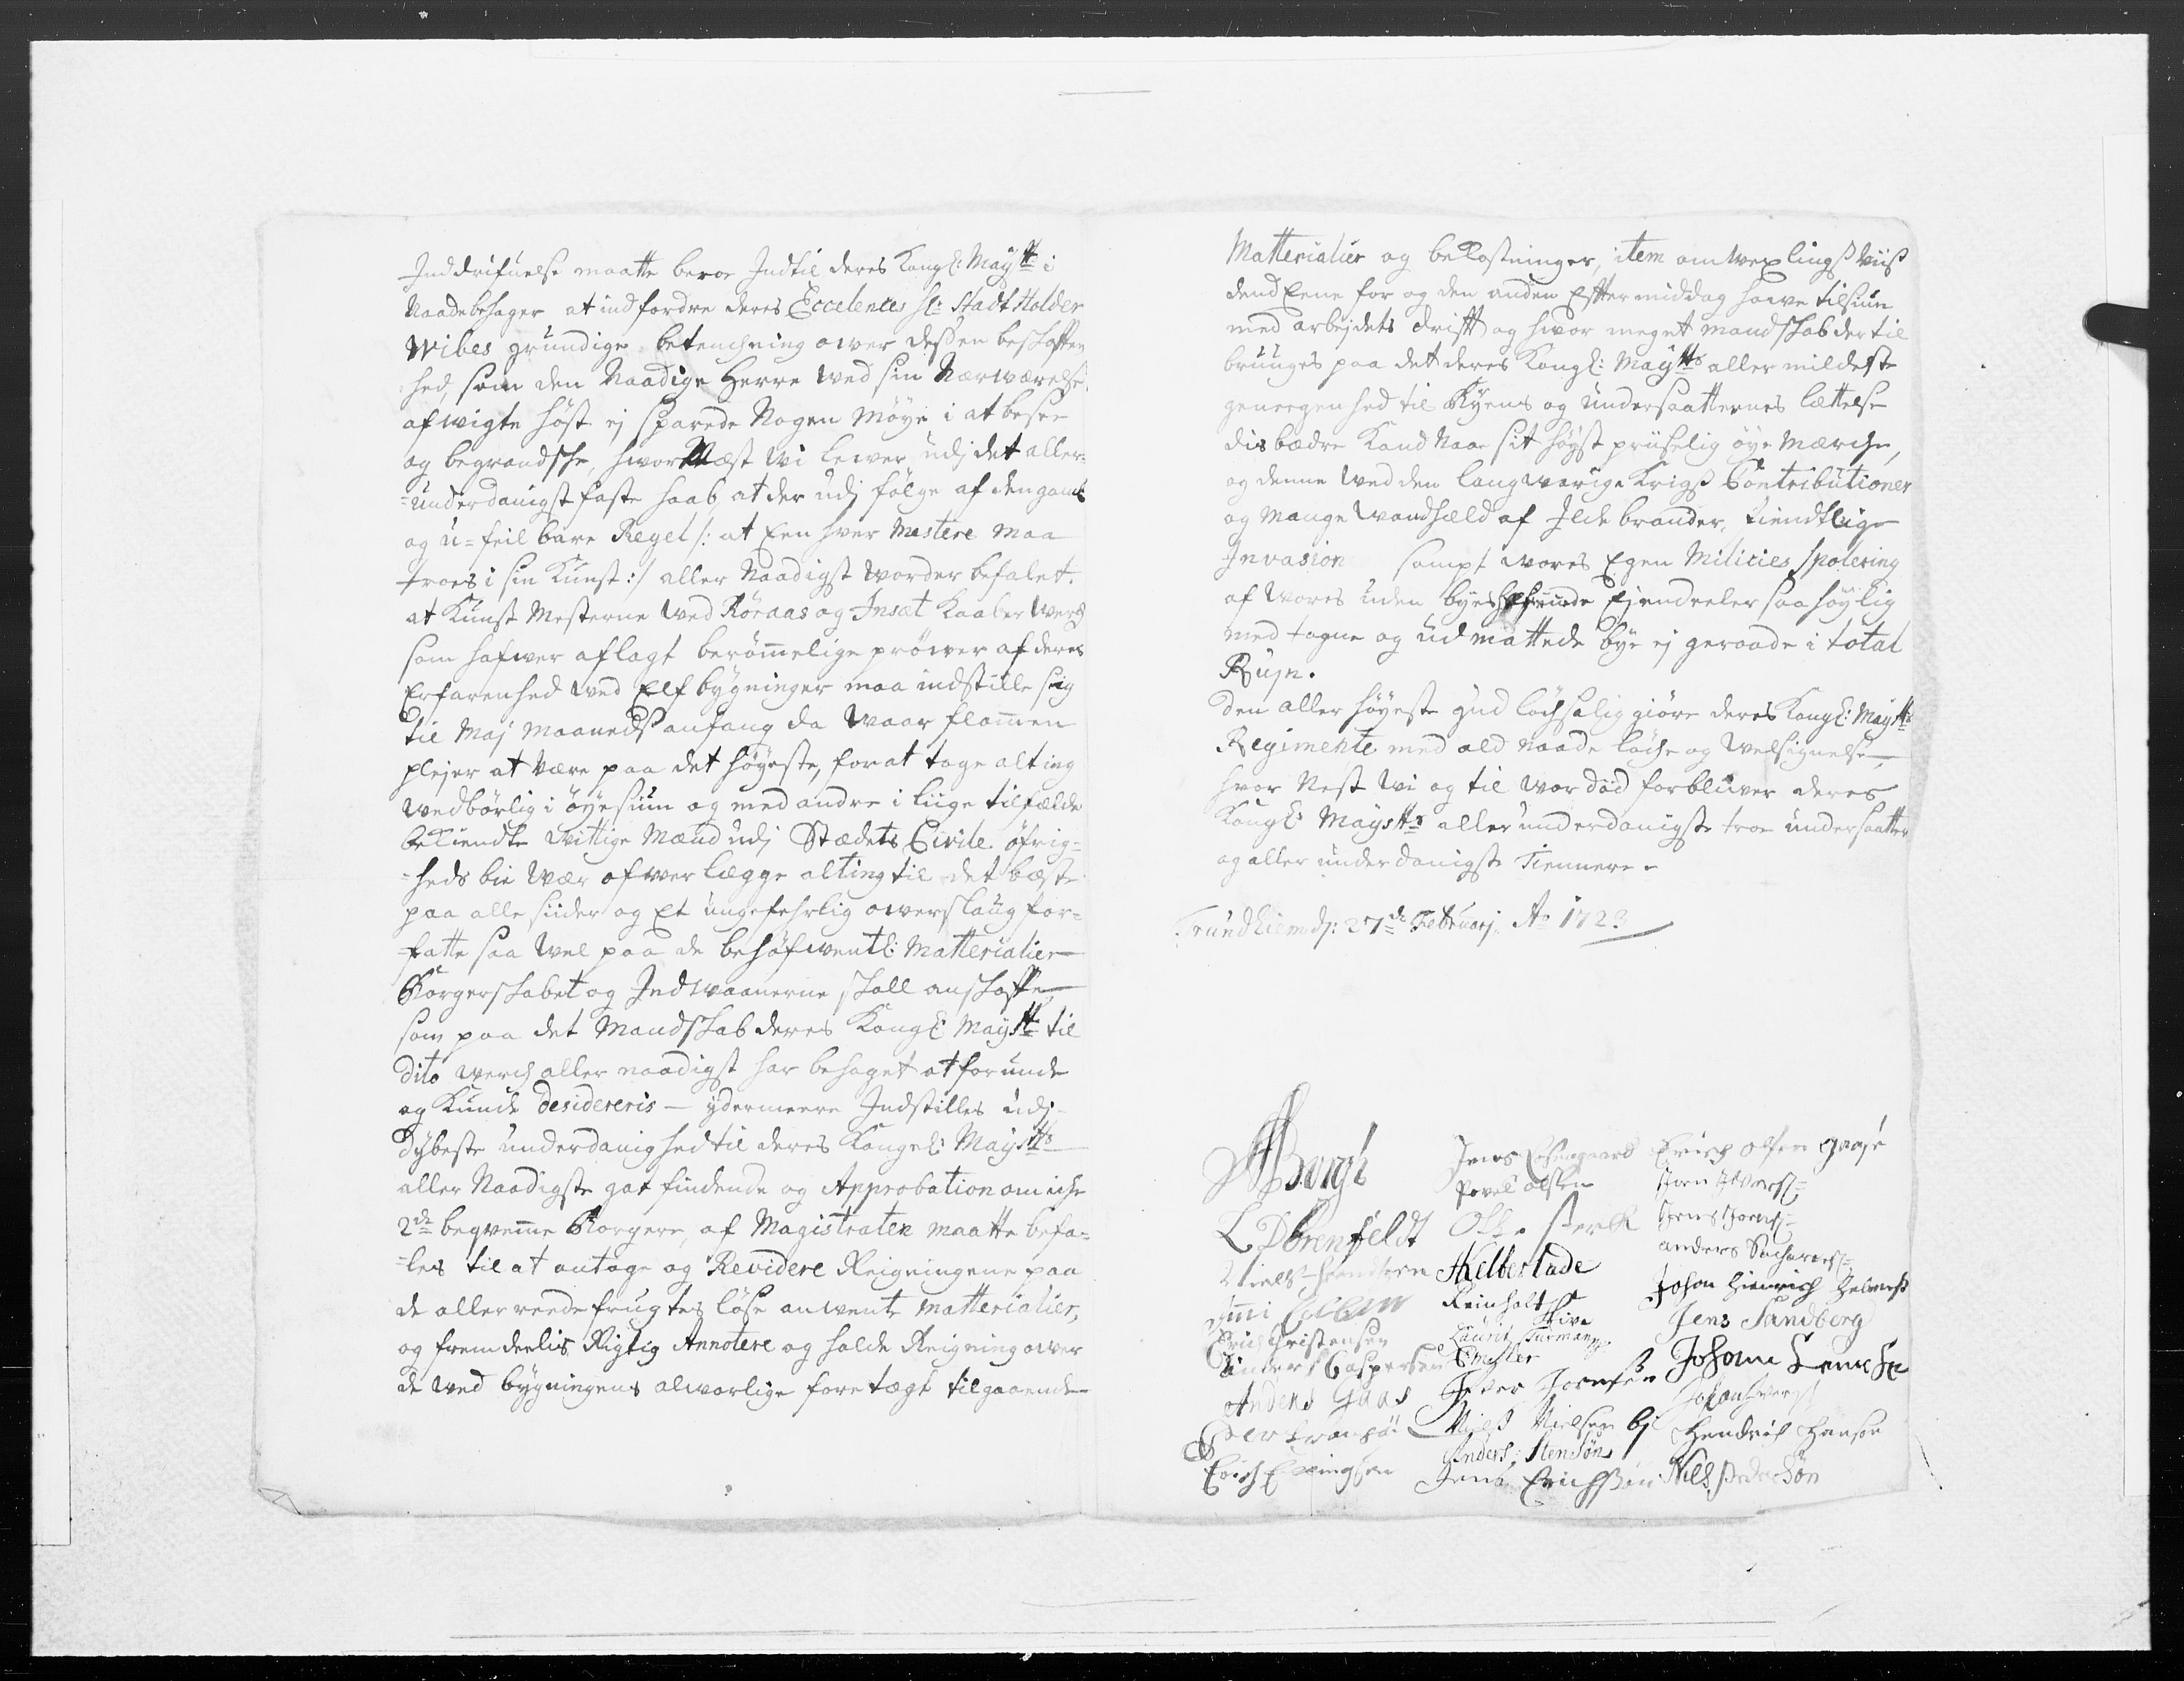 Inddrifvelse maatte beroe Indtil deres Kongl: Maytt i
Naade behager at indfordre deres Eccelences Hr: Stadt Holder
Wibes grundige betenchning ower deßen beskaffen
hed, som den Naadige Herre wed sin Nærwærelse
afwigte høst ej sparede Nogen Møye i at besee
og begrandsche, hvor Næst wi lewer udj det aller=
=underdanigst faste haab, at der udj følge af den gaml
og u=feilbare Regel /: at Een hver Mestere maa
troes i sin Kunst :/ aller Naadigst worder befalet.
at Kunst Mesterne wed Røraas og Insæt Kaaber werch
som hafwer aflagt berømmelige prøwer af deres
Erfarenhed wed Elf bygninger maa indstille sig
til Maj Maaneds anfang da waar flommen
plejer at være paa det høyeste, for at tage alting
wedbørlig i øyesiun og med andre i liige tilfælde
bekiendte wittige Mænd udj Stædets Civile øfrig=
=heds bie wær ofwerlægge alting til det bæste
paa alle siider og Et ungefehrlig owerslaug for=
=fatte saa wel paa de behøfwentl: Matterialier
Borgerskabet og Indwaanerne skall anskaffe,
som paa det Mandskab deres Kongl: Maytt til
dito werch aller naadigst har behaget at forunde
og Kunde desidereris — ydermeere Indstilles udj
dybeste underdanighed til deres Kongel: Maytts
aller Naadigste got findende og Approbation om iche
2de beqvemme Borgere, af Magistraten maatte befa=
=les til at antage og Revidere Reigningene paa
de aller reede frugtes løse anwente matterialier,
og fremdeelis Rigtig Annotere og holde Reigning ower
de wed bygningens alworlige foretægt tilgaaende
Matterialier og bekostninger, item omwexlings viis
dend Eene for og den anden Efter middag hawe tilsiun
med arbejdets drift og hvor meget mandskab der til
bruges paa det deres Kongl: Maytts aller mildeste
geneegenhed til Byens og undersaatternes lettelse
dis bædre Kand Naae sit høyst priiselig øye Mærche,
og denne wed den langwarige Krigs Contributioner
og mange wandheld af Ilde brander, fiendtlige
Invasion sampt wores Egen Milicies spolering
af wores uden byes Eiendeeler saa høylig
med tagne og udmattede bye ej geraade i total
Rujn.
den aller høyeste gud lychsalig giøre deres Kongl: Maytts
Regimente med ald naade lyche og welsignelse,
hvor Nest wi og til wor død forbliwer deres
Kongl: Maystts aller underdanigste troe undersaatter
og aller underdanigste Tiennere.
Trundhiem dj: 27de Februarj Ao 1723
Borch
Jens
Erich Olsen Gaasе
Povel Olsen
L Dbrenfeldt
Niels
Helberlade
Anders
Reinholt
Johan Hinrich
Erich Christensen
Laurit
Jens Sandberg
Anders Caspersen
Anders Gaas
Peder
Niels Nielsen
Hendrich Hansen
Anders Stensøn
Erich
Jens Erichsøn
Niels Pedersøn